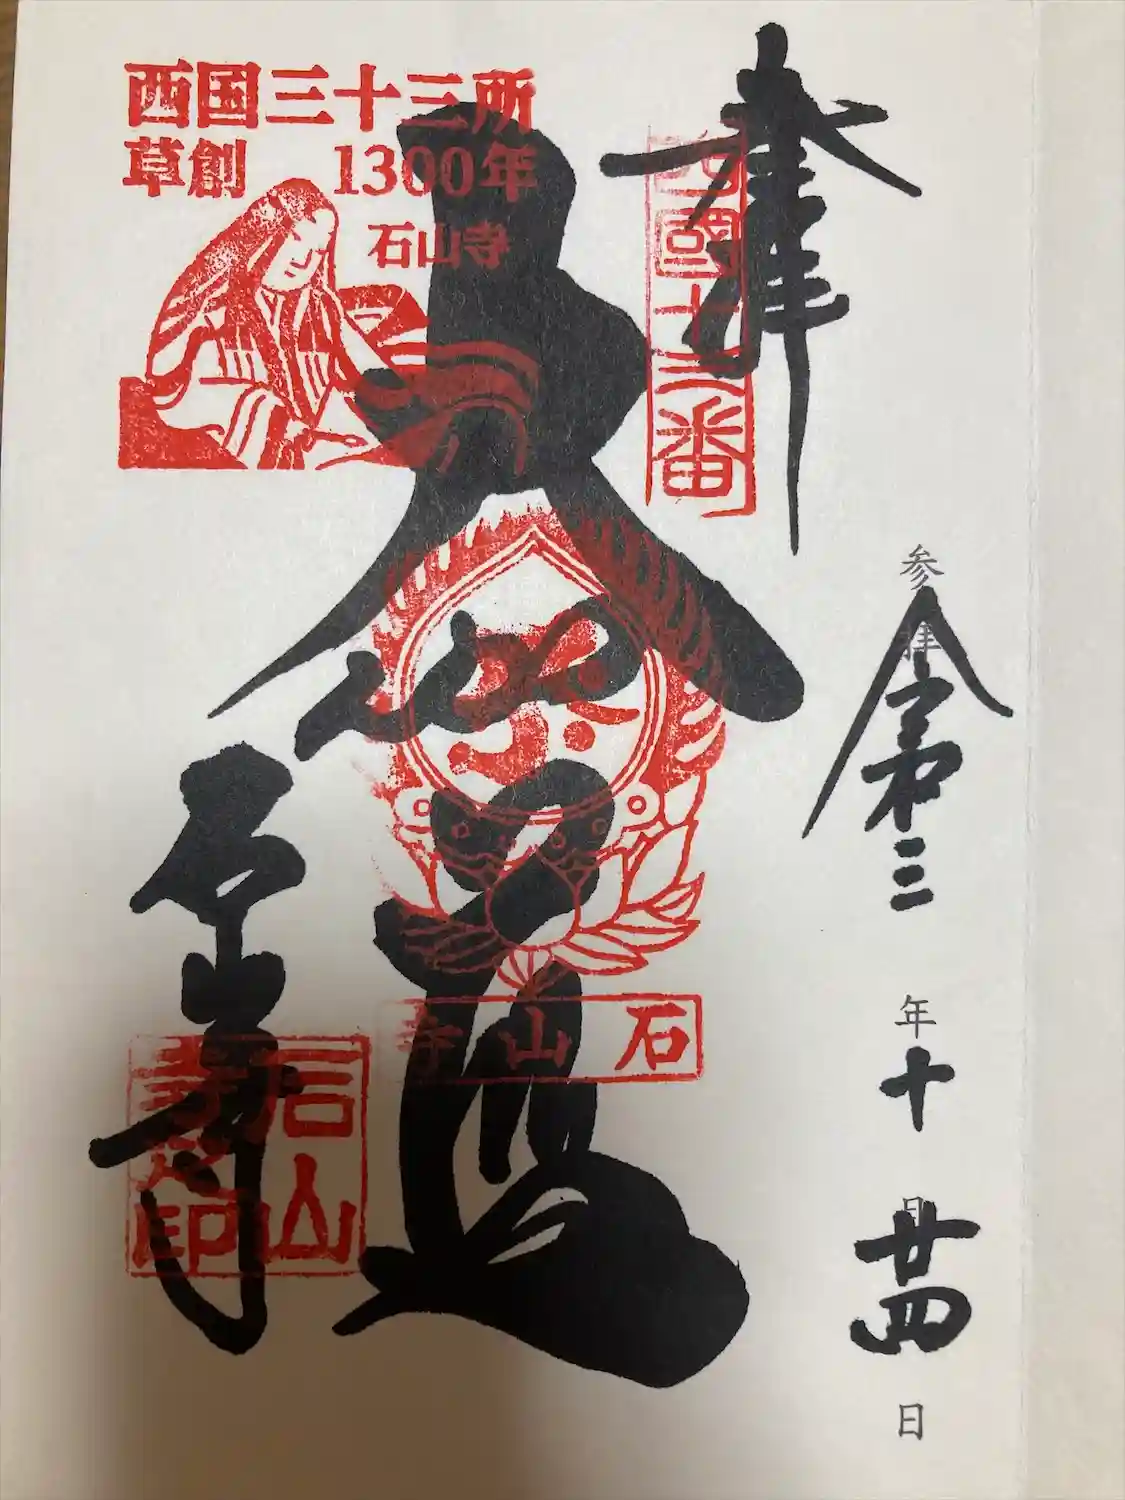 奉拝
西國十三番
参拝 令和三年十月廿四日
西国三十三所
草創 1300年
石山寺
大伽藍
石山寺
石山寺
石山寺印